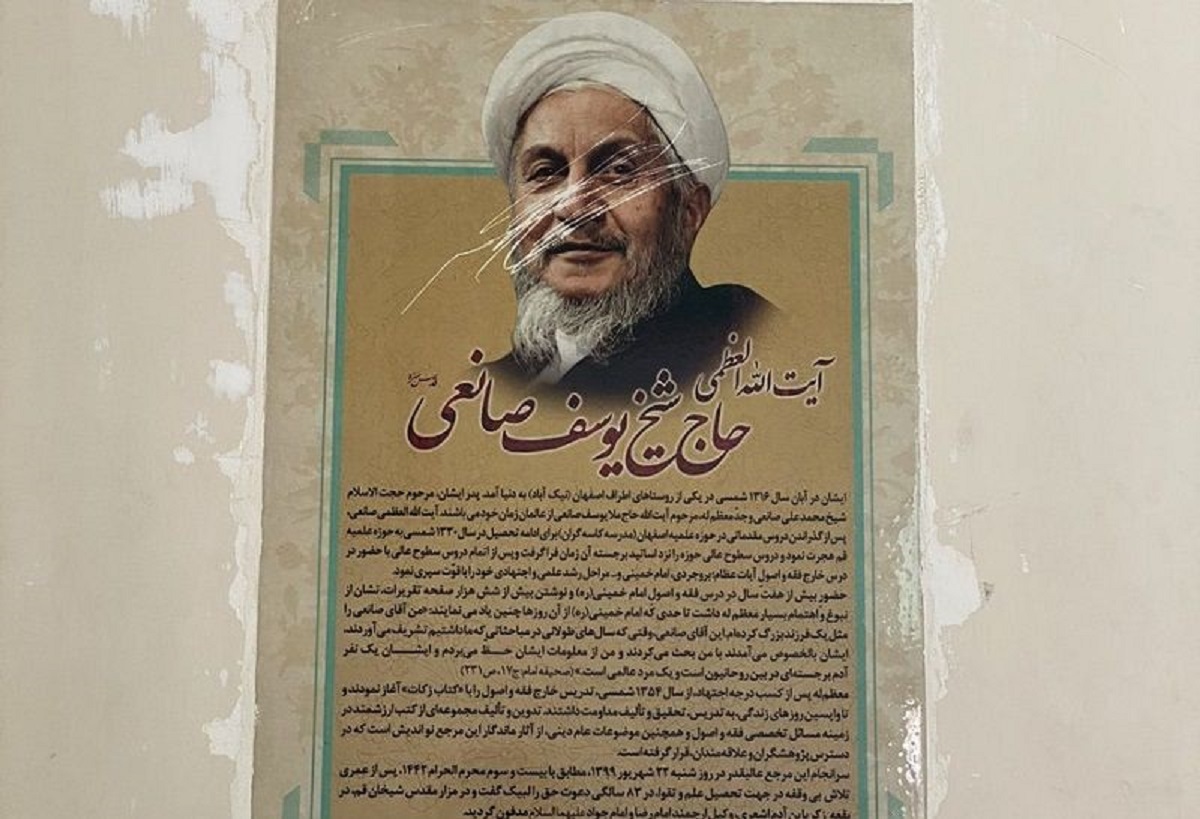 آیت الله العظمی
حاج شیخ یوسف صانعی
ایشان در آبان سال ۱۳۱۶ شمسی در یکی از روستاهای اطراف اصفهان (نیک آباد) به دنیا آمد. پدر ایشان، مرحوم حجت الاسلام
شیخ محمدعلی صانعی و جدّ معظم له، مرحوم آیت الله حاج ملا یوسف صانعی از عالمان زمان خود می باشند. آیت الله العظمی صانعی،
پس از گذراندن دروس مقدماتی در حوزه علمیه اصفهان (مدرسه کاسه گران) برای ادامه تحصیل در سال ۱۳۳۰ شمسی به حوزه علمیه
قم هجرت نمود و دروس سطوح عالی حوزه را نزد اساتید برجسته آن زمان فرا گرفت و پس از اتمام دروس سطوح عالی با حضور در
درس خارج فقه و اصول آیات عظام: بروجردی، امام خمینی و... مراحل رشد علمی و اجتهادی خود را با قوّت سپری نمود.
حضور بیش از هفت سال در درس فقه و اصول امام خمینی(ره) و نوشتن بیش از شش هزار صفحه تقریرات، نشان از
نبوغ و اهتمام بسیار معظم له داشت تا حدی که امام خمینی(ره) از آن روزها چنین یاد می نمایند: «من آقای صانعی را
مثل یک فرزند بزرگ کرده ام. این آقای صانعی، وقتی که سال های طولانی در مباحثاتی که ما داشتیم تشریف می آوردند،
ایشان بالخصوص می آمدند با من بحث می کردند و من از معلومات ایشان حظ می بردم و ایشان یک نفر
آدم برجسته ای در بین روحانیون است و یک مرد عالمی است.» (صحیفه امام، ج۱۷، ص۲۳۱)
معظم له پس از کسب درجه اجتهاد، از سال ۱۳۵۴ شمسی، تدریس خارج فقه و اصول را با «کتاب زکات» آغاز نمودند و
تا واپسین روزهای زندگی، به تدریس، تحقیق و تألیف مداومت داشتند. تدوین و تألیف مجموعه ای از کتب ارزشمند در
زمینه مسائل تخصصی فقه و اصول و همچنین موضوعات عام دینی، از آثار ماندگار این مرجع نواندیش است که در
دسترس پژوهشگران و علاقه مندان، قرار گرفته است.
سرانجام این مرجع عالیقدر در روز شنبه ۲۲ شهریور ۱۳۹۹، مطابق با بیست و سوم محرم الحرام ۱۴۴۲، پس از عمری
تلاش بی وقفه در جهت تحصیل علم و تقوا، در ۸۳ سالگی دعوت حق را لبیک گفت و در مزار مقدس شیخان قم، در
بقعه زکریا بن آدم اشعری، وکیل ارجمند امام رضا و امام جواد علیهما السلام مدفون گردید.